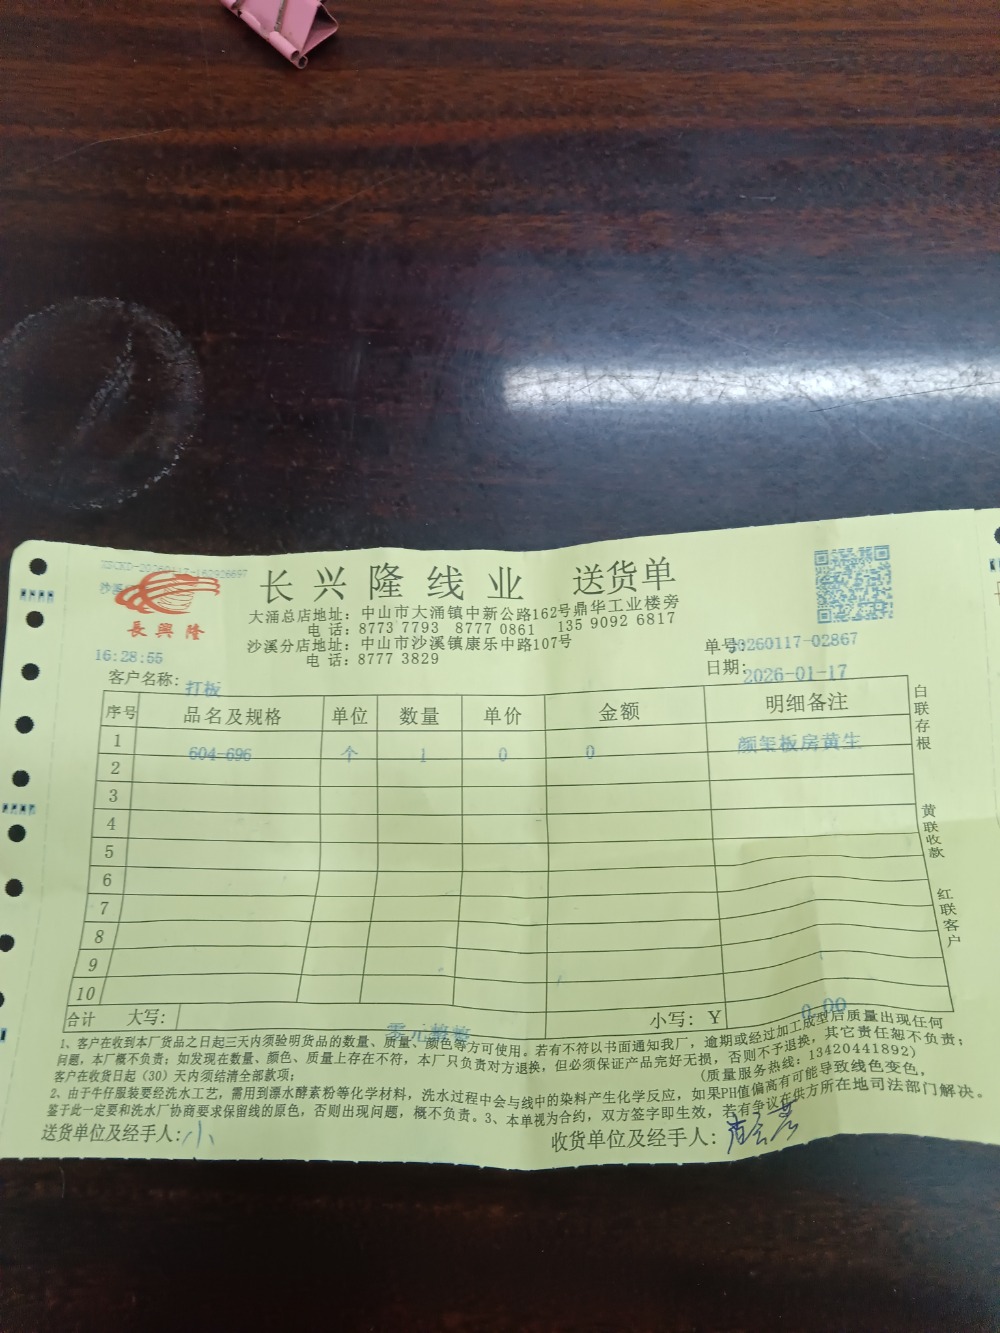 长兴隆线业 送货单
長興隆
大涌总店地址：中山市大涌镇中新公路162号鼎华工业楼旁
电 话：8773 7793 8777 0861 135 9092 6817
沙溪分店地址：中山市沙溪镇康乐中路107号
电 话：8777 3829
16:28:55
单号:20260117-02867
日期: 2026-01-17
客户名称: 打板
序号 品名及规格 单位 数量 单价 金额 明细备注
1 604-696 个 1 0 0 颜玺板房黄生
2
3
4
5
6
7
8
9
10
合计 大写: 零元整 小写: Y 0.00
白联存根
黄联收款
红联客户
1、客户在收到本厂货品之日起三天内须验明货品的数量、质量、颜色等方可使用。若有不符以书面通知我厂，逾期或经过加工成型后质量出现任何
问题，本厂概不负责；如发现在数量、颜色、质量上存在不符，本厂只负责对方退换，但必须保证产品完好无损，否则不予退换，其它责任恕不负责；
客户在收货日起（30）天内须结清全部款项； (质量服务热线: 13420441892)
2、由于牛仔服装要经洗水工艺，需用到漂水酵素粉等化学材料，洗水过程中会与线中的染料产生化学反应，如果PH值偏高有可能导致线色变色，
鉴于此一定要和洗水厂协商要求保留线的原色，否则出现问题，概不负责。3、本单视为合约，双方签字即生效，若有争议在供方所在地司法部门解决。
送货单位及经手人: 小
收货单位及经手人: